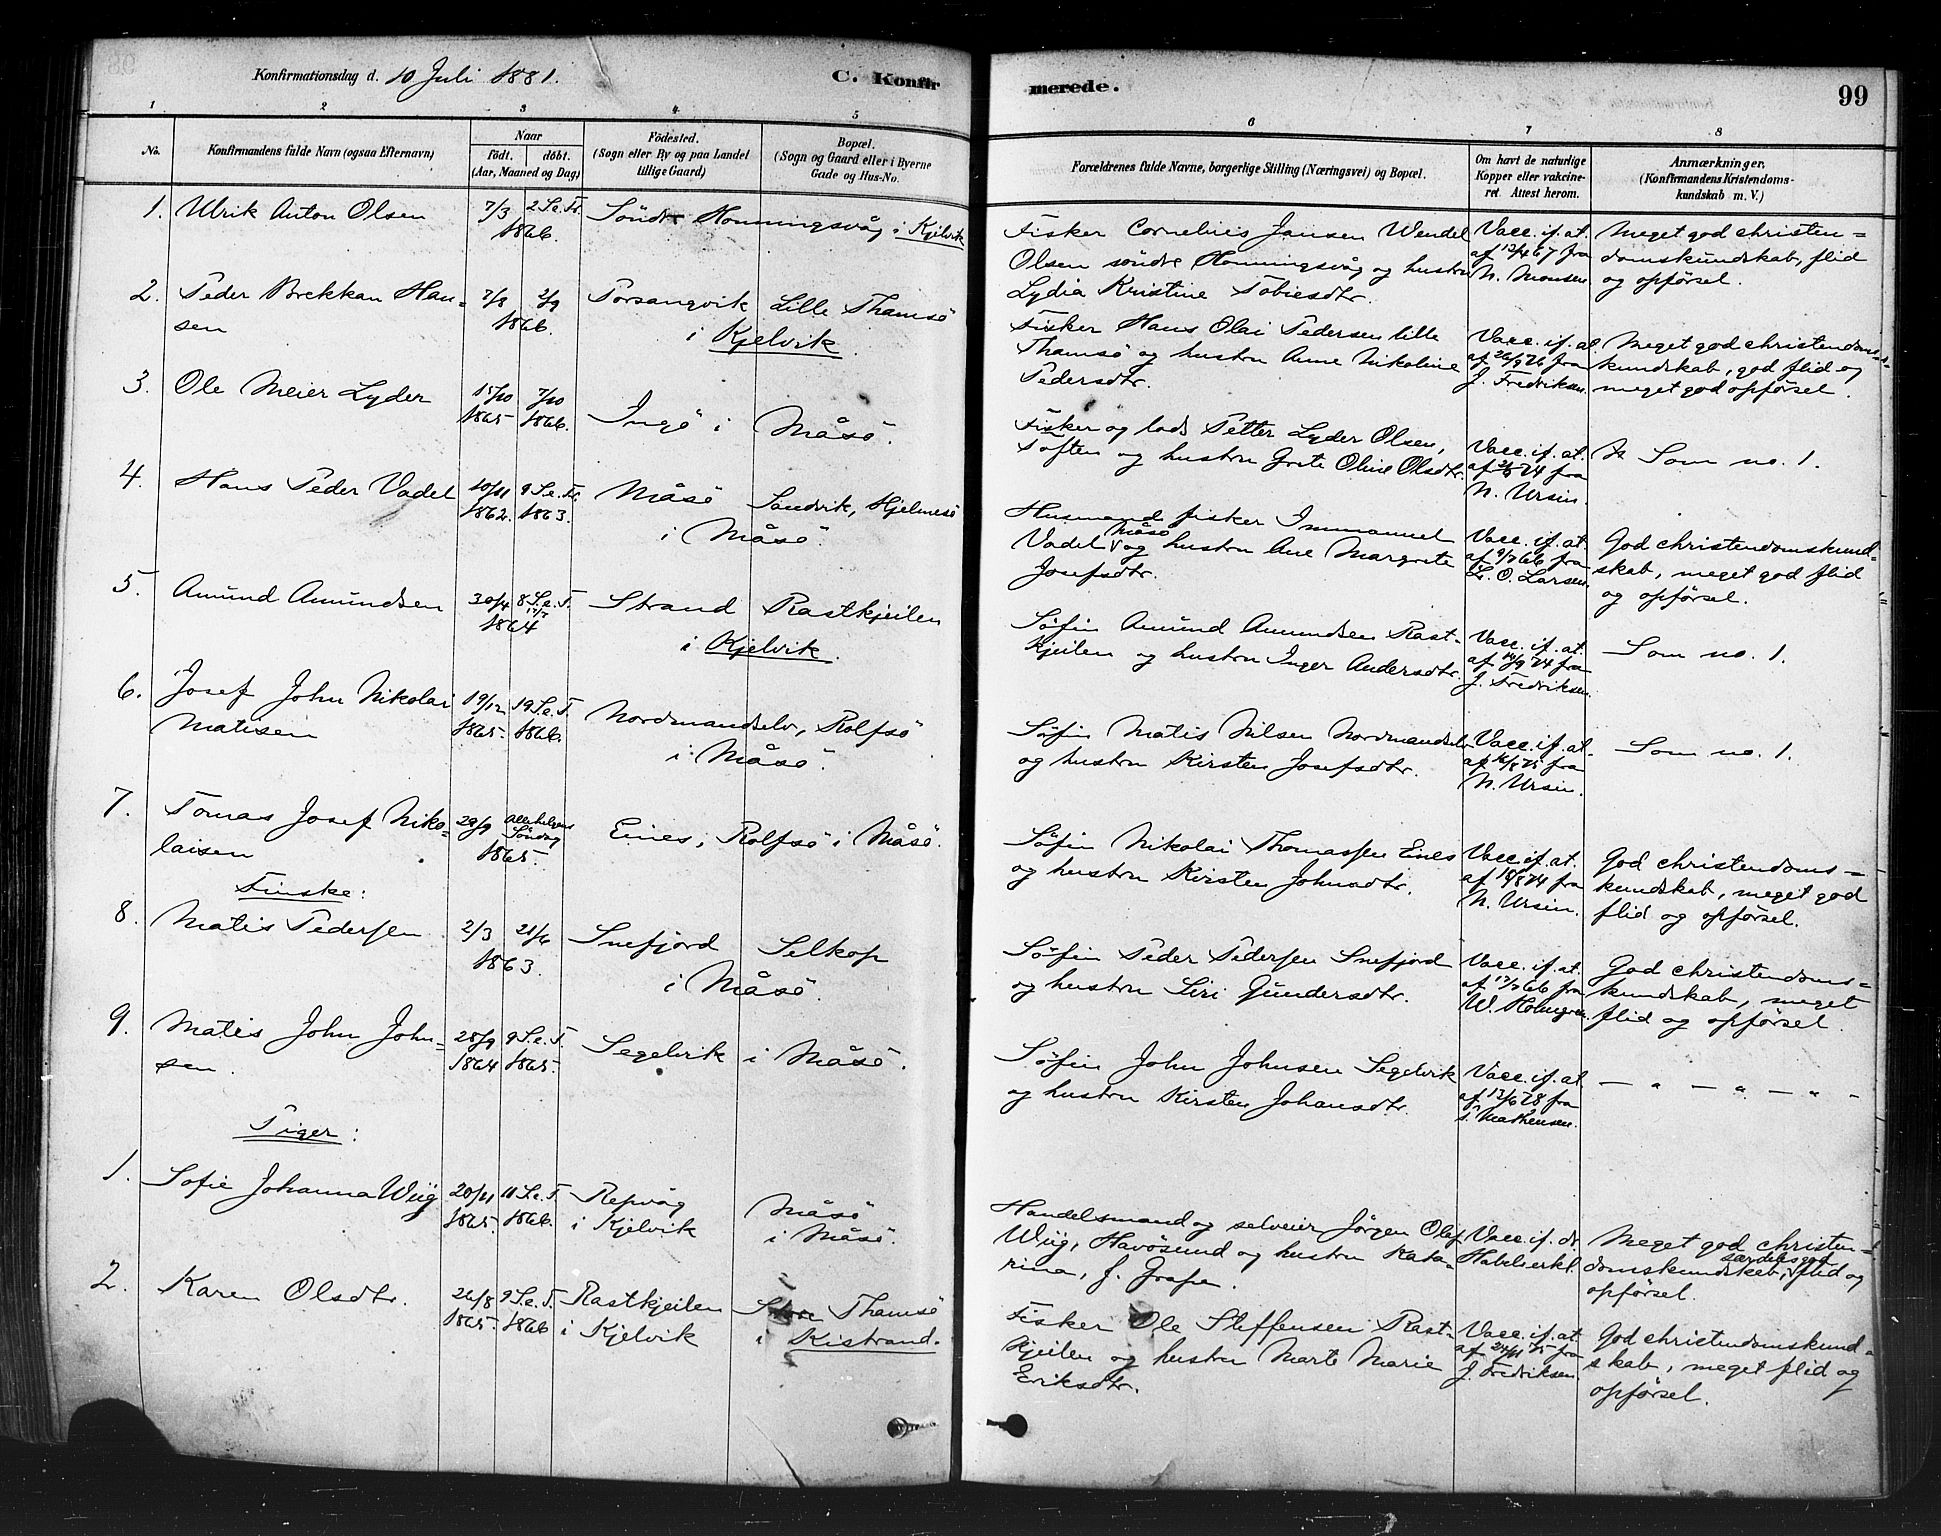 Konfirmationsdag d. 10 Juli 1881.
C. Konfirmerede.
99
1 2 3 4 5 6 7 8
No.
Konfirmandens fulde Navn (ogsaa Efternavn)
Naar
födt. döbt.
(Aar, Maaned og Dag)
Födested.
(Sogn eller By og paa Landet
tillige Gaard)
Bopæl.
(Sogn og Gaard eller i Byerne
Gade og Hus-No.
Forældrenes fulde Navne, borgerlige Stilling (Næringsvei) og Bopæl.
Om havt de naturlige
Kopper eller vakcine-
ret. Attest herom.
Anmærkninger.
(Konfirmandens Kristendoms-
kundskab m. V.)
1. Ulrik Anton Olsen
7/3 2 S.e.Tr.
1866.
Söndre Honningsvåg i Kjelvik
Fisker Cornelius Jansen Wendel
Olsen söndre Honningsvåg og hustru
Lydia Kristine Tobiesdtr.
Vacc. if. at.
af 12/4 67 fra
N. Monsen
Meget god christen=
domskundskab, flid
og opförsel.
2. Peder Brekkan Han-
sen
7/8 2/9
1866.
Porsangvik Lille Thamsö
i Kjelvik.
Fisker Hans Olai Pedersen lille
Thamsö og hustru Anne Nikoline
Pedersdtr.
Vacc. if. at.
af 26/9 76 fra
J. Fredriksen
Meget god christendoms-
kundskab, god flid og
meget god opförsel.
3. Ole Meier Lyder
15/10 7/10
1865 1866.
Ingö i Måsö.
Fisker og lods Petter Lyder Olsen,
Toften og hustru Grete Oline Olsdtr.
Vacc. if. at.
af 2/5 74 fra
N. Ursin.
Som no. 1.
4. Hans Peder Vadel
10/11 9 S.e.Tr.
1862. 1863.
Måsö Sandvik, Hjelmesö
i Måsö.
Husmand fisker Immanuel
Vadel Måsö og hustru Ane Margrete
Josefsdtr.
Vacc. if. at.
af 9/7 66 fra
L. O. Larsen
God christendomskund-
skab, meget god flid
og opförsel.
5. Amund Amundsen
30/4 8 S.e.T.
17/7
1864
Strand Rastkjeilen
i Kjelvik.
Söfin Amund Amundsen Rast-
kjeilen og hustru Inger Andersdtr.
Vacc. if. at.
af 14/9 74 fra
J. Fredriksen
Som no. 1.
6. Josef John Nikolai
Matisen
19/12 19 S.e.T.
1865. 1866.
Nordmandselv, Rolfsö
i Måsö.
Söfin Matis Nilsen Nordmandselv
og hustru Kirsten Josefsdtr.
Vacc. if. at.
af 16/8 75 fra
N. Ursin.
Som no. 1.
7. Tomas Josef Niko-
laisen
29/9 Allehelgens
Söndag
1865.
Eines, Rolfsö i Måsö.
Söfin Nikolai Thomassen Eines
og hustru Kirsten Johnsdtr.
Vacc. if. at.
af 18/8 74 fra
N. Ursin.
God christendoms=
kundskab, meget god
flid og opförsel.
Finske:
8. Matis Pedersen
2/3 21/6
1863.
Snefjord Selkop
i Måsö.
Söfin Peder Pedersen Snefjord
og hustru Siri Gundersdtr.
Vacc. if. at.
af 17/7 66 fra
W. Holmgren
God christendoms=
kundskab, meget
flid og opförsel.
9. Matis John John-
sen.
28/9 9 S.e.T.
1864 1865.
Segelvik i Måsö.
Söfin John Johnsen Segelvik
og hustru Kirsten Johansdtr.
Vacc. if. at
af 12/6 78 fra
Mathensen.
— " — " — " -
Piger:
1. Sofie Johanna Wiig
20/11 11 S.e.T.
1865. 1866.
Repvåg Måsö
i Kjelvik i Måsö.
Handelsmand og selveier Jörgen Olaf
Wiig, Havösund og hustru Kata-
rina, f. Grape.
Vacc. if. dr
Habelerkl.
Meget god christen-
domskundskab, særdeles god flid og
opförsel.
2. Karen Olsdtr.
26/8 9 S.e.T.
1865. 1866
Rastkjeilen Store Thamsö
i Kjelvik i Kistrand.
Fisker Ole Steffensen Rast-
kjeilen og hustru Marte Marie
Eriksdtr.
Vacc. if. at.
af 24/11 75 fra
J. Fredriksen.
God christendomskund-
skab, meget flid og
opförsel.